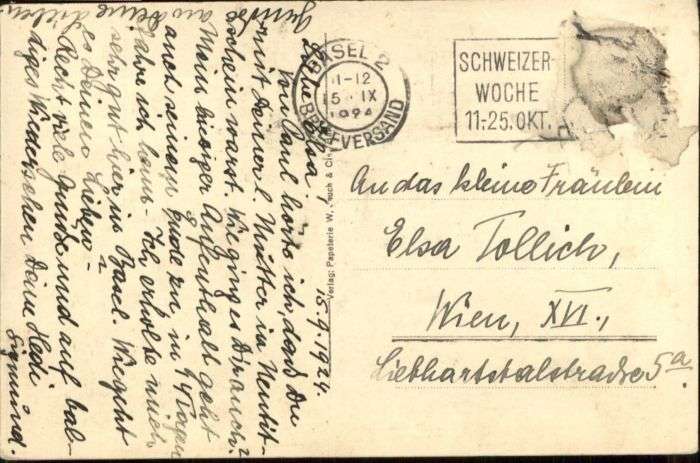 BASEL 2
11-12
15. IX
1924
BRIEFVERSAND
SCHWEIZER-
WOCHE
11.-25. OKT.
An das kleine Fräulein
Elsa Tollich,
Wien, XVI.,
Liebhartstalstrasse 5a
Verlag: Papeterie W.
15.9.1924.
Liebe Elsa!
Von Paul hörte ich, daß Du
mit Deiner l. Mutter in Neutit-
schein warst. Wie ging es Dir auch?
Mein hiesiger Aufenthalt geht
auch seinem Ende zu, in 14 Tagen
fahre ich heim. Ich erhole mich
sehr gut hier in Basel. Wie geht
es Deinen Lieben?
Recht viele Grüße und auf bal-
diges Wiedersehen Deine Hedi
Sigmund.
an Deine Lieben.